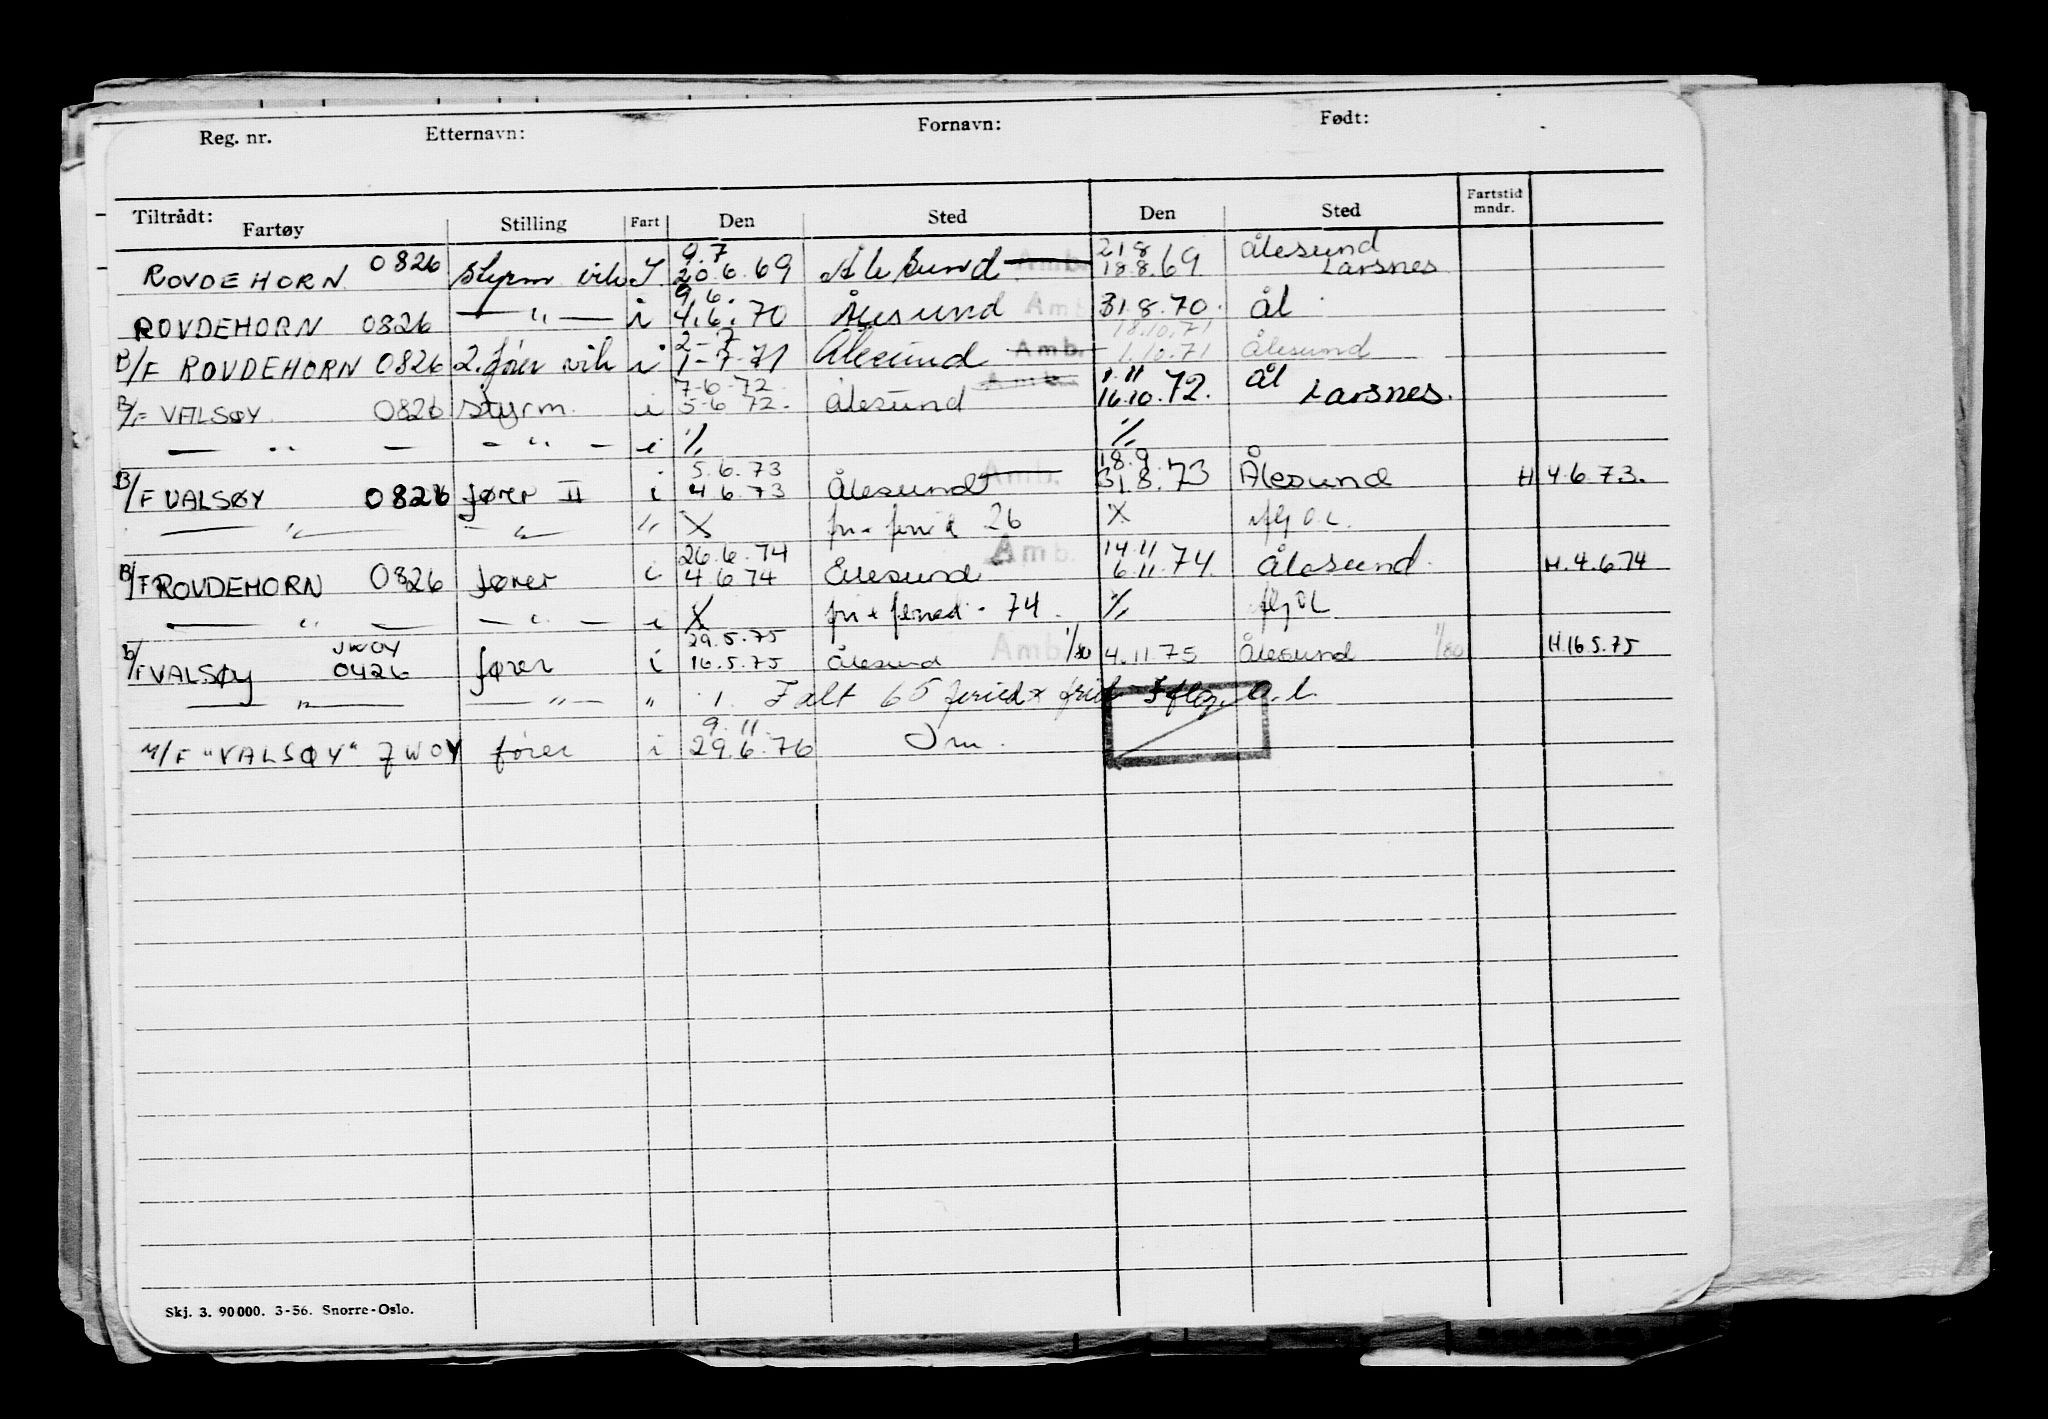 Reg. nr. Etternavn: Fornavn: Født:
Tiltrådt: Fartøy Stilling Fart Den Sted Den Sted Fartstid mndr.
9.7 21 8 Ålesund
ROVDEHORN 0826 styrm vik I 20.6.69 Ålesund Amb. 18.8.69 Larsnes
9.6.
ROVDEHORN 0826 — " — i 4.6.70 Ålesund Amb 31.8.70. Ål
2-7 18.10.71
B/F ROVDEHORN 0826 2. fører vik i 1-7-71 Ålesund Amb. 1.10.71 Ålesund
7-6-72. 1.11 Ål
B/F VALSØY 0826 styrm. i 5-6 72. Ålesund Amb. 16.10.72. Larsnes.
— " — — " — i % %
5.6.73 18.9.
B/F VALSØY 0826 fører II i 4 6.73 Ålesund Amb. 31.8.73 Ålesund H 4.6.73.
— " — — " — " X 26 X
26.6.74 Amb. 14.11
B/F ROVDEHORN 0826 fører i 4.6 74 Ålesund 6.11.74. Ålesund H.4.6.74
— " — — " — i X 74. %
JWOY 29.5.75
B/F VALSØY 0426 fører i 16.5.75 Ålesund Amb 1/80 4.11.75 Ålesund 1/80 H.16.5.75
— " — — " — " 1. I alt 65
9.11.
M/F "VALSØY" JWOY fører i 29.6.76
Skj. 3. 90000. 3-56. Snorre-Oslo.